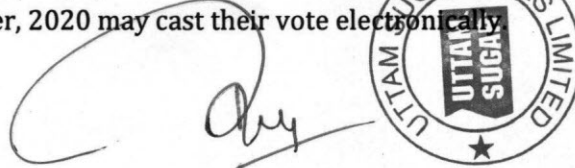 er, 2020 may cast their vote electronically.
UTTAM SUGAR
LIMITED
UTTAM
SUGAR